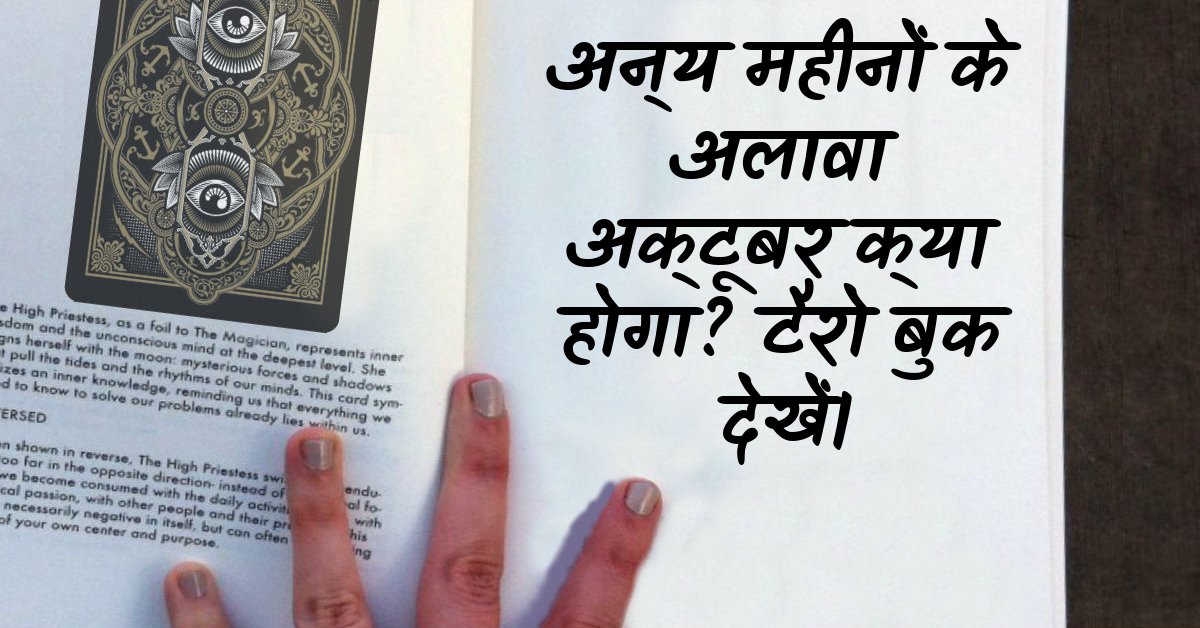 e High Priestess, as a foil to The Magician, represents inner
sdom and the unconscious mind at the deepest level. She
gns herself with the moon: mysterious forces and shadows
t pull the tides and the rhythms of our minds. This card sym-
izes an inner knowledge, reminding us that everything we
ed to know to solve our problems already lies within us.
ERSED
en shown in reverse, The High Priestess
too far in the opposite direction- instead of endu-
we become consumed with the daily al fo-
cal passion, with other people and their with
necessarily negative in itself, but can often his
of your own center and purpose. ing
अन्‌य महीनों के
अलावा
अक्‌टूबर क्‌या
होगा? टैरो बुक
देखें।